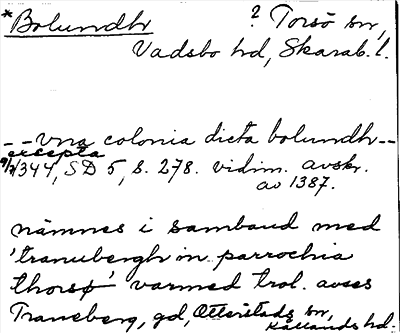 *Bolundhr ? Torsö sn,
Vadsbo hd, Skarab. l.
--vna colonia dicta bolundhr--
excepta
9/7 1344, SD 5, s. 278. vidim. avskr.
av 1387.
nämnes i samband med
'tranubergh in parrochia
thorsø' varmed trol. avses
Traneberg, gd, Otterstads sn,
Kållands hd.